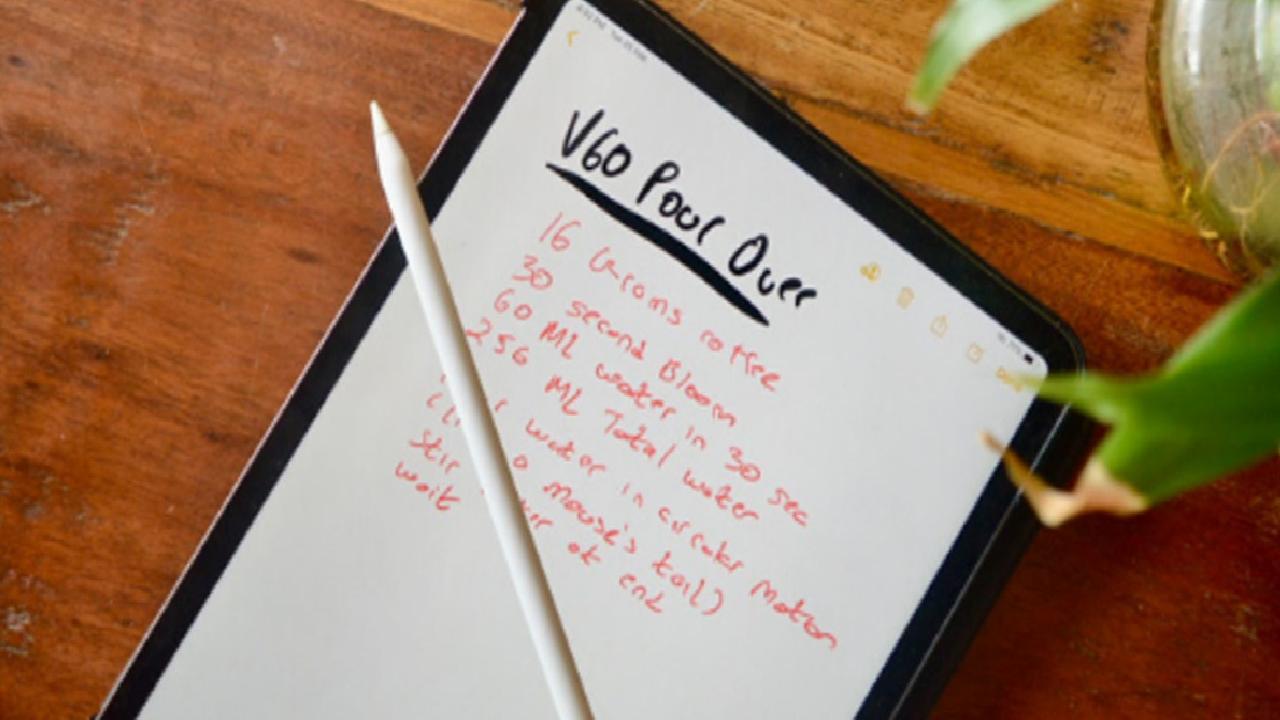 V60 Pour Over
16 Grams coffee
30 second Bloom
60 ML water in 30 sec
256 ML Total water
water in circular Motion
mouse's tail)
Stir over at end
wait